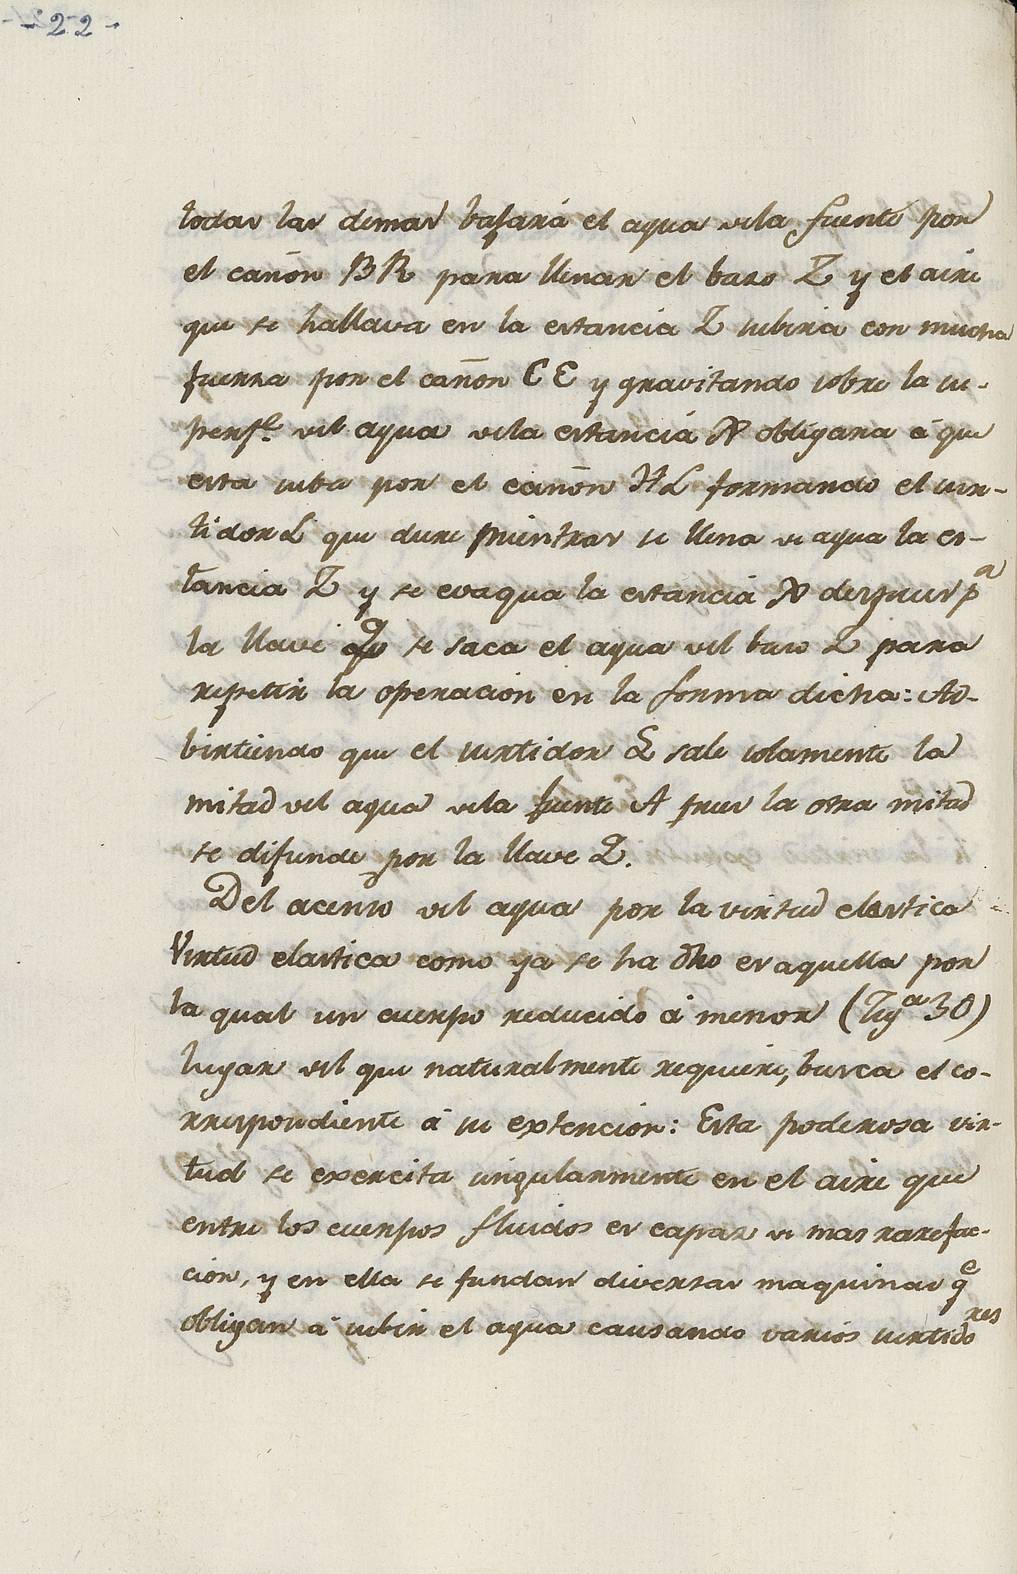 - 22 -
todas las demas bajará el agua dela fuente por
el cañon BR para llenar el baso Z y el aire
que se hallava en la estancia Z subirá con mucha
fuerza por el cañon CE y gravitando sobre la su-
perf.^e del agua dela estancia N obligara á que
esta suba por el cañon HL formando el sur-
tidor L que dure mientras se llena de agua la es-
tancia Z y se evaqua la estancia N despues p^a
la llave se saca el agua del baso Z para
repetir la operacion en la forma dicha: Ad-
birtiendo que el surtidor L sale solamente la
mitad del agua dela fuente A pues la otra mitad
se difunde por la llave Z.
Del acenso del agua por la virtud elastica
Virtud elastica como ya se ha dho es aquella por
la qual un cuerpo reducido á menor (Fig^a 30)
lugar del que naturalmente requiere, busca el co-
rrespondiente á su extencion: Esta poderosa vir-
tud se exercita singularmente en el aire que
entre los cuerpos fluidos es capaz de mas rarefac-
cion, y en ella se fundan diversas maquinas q^e
obligan á subir el agua causando varios surtido^res